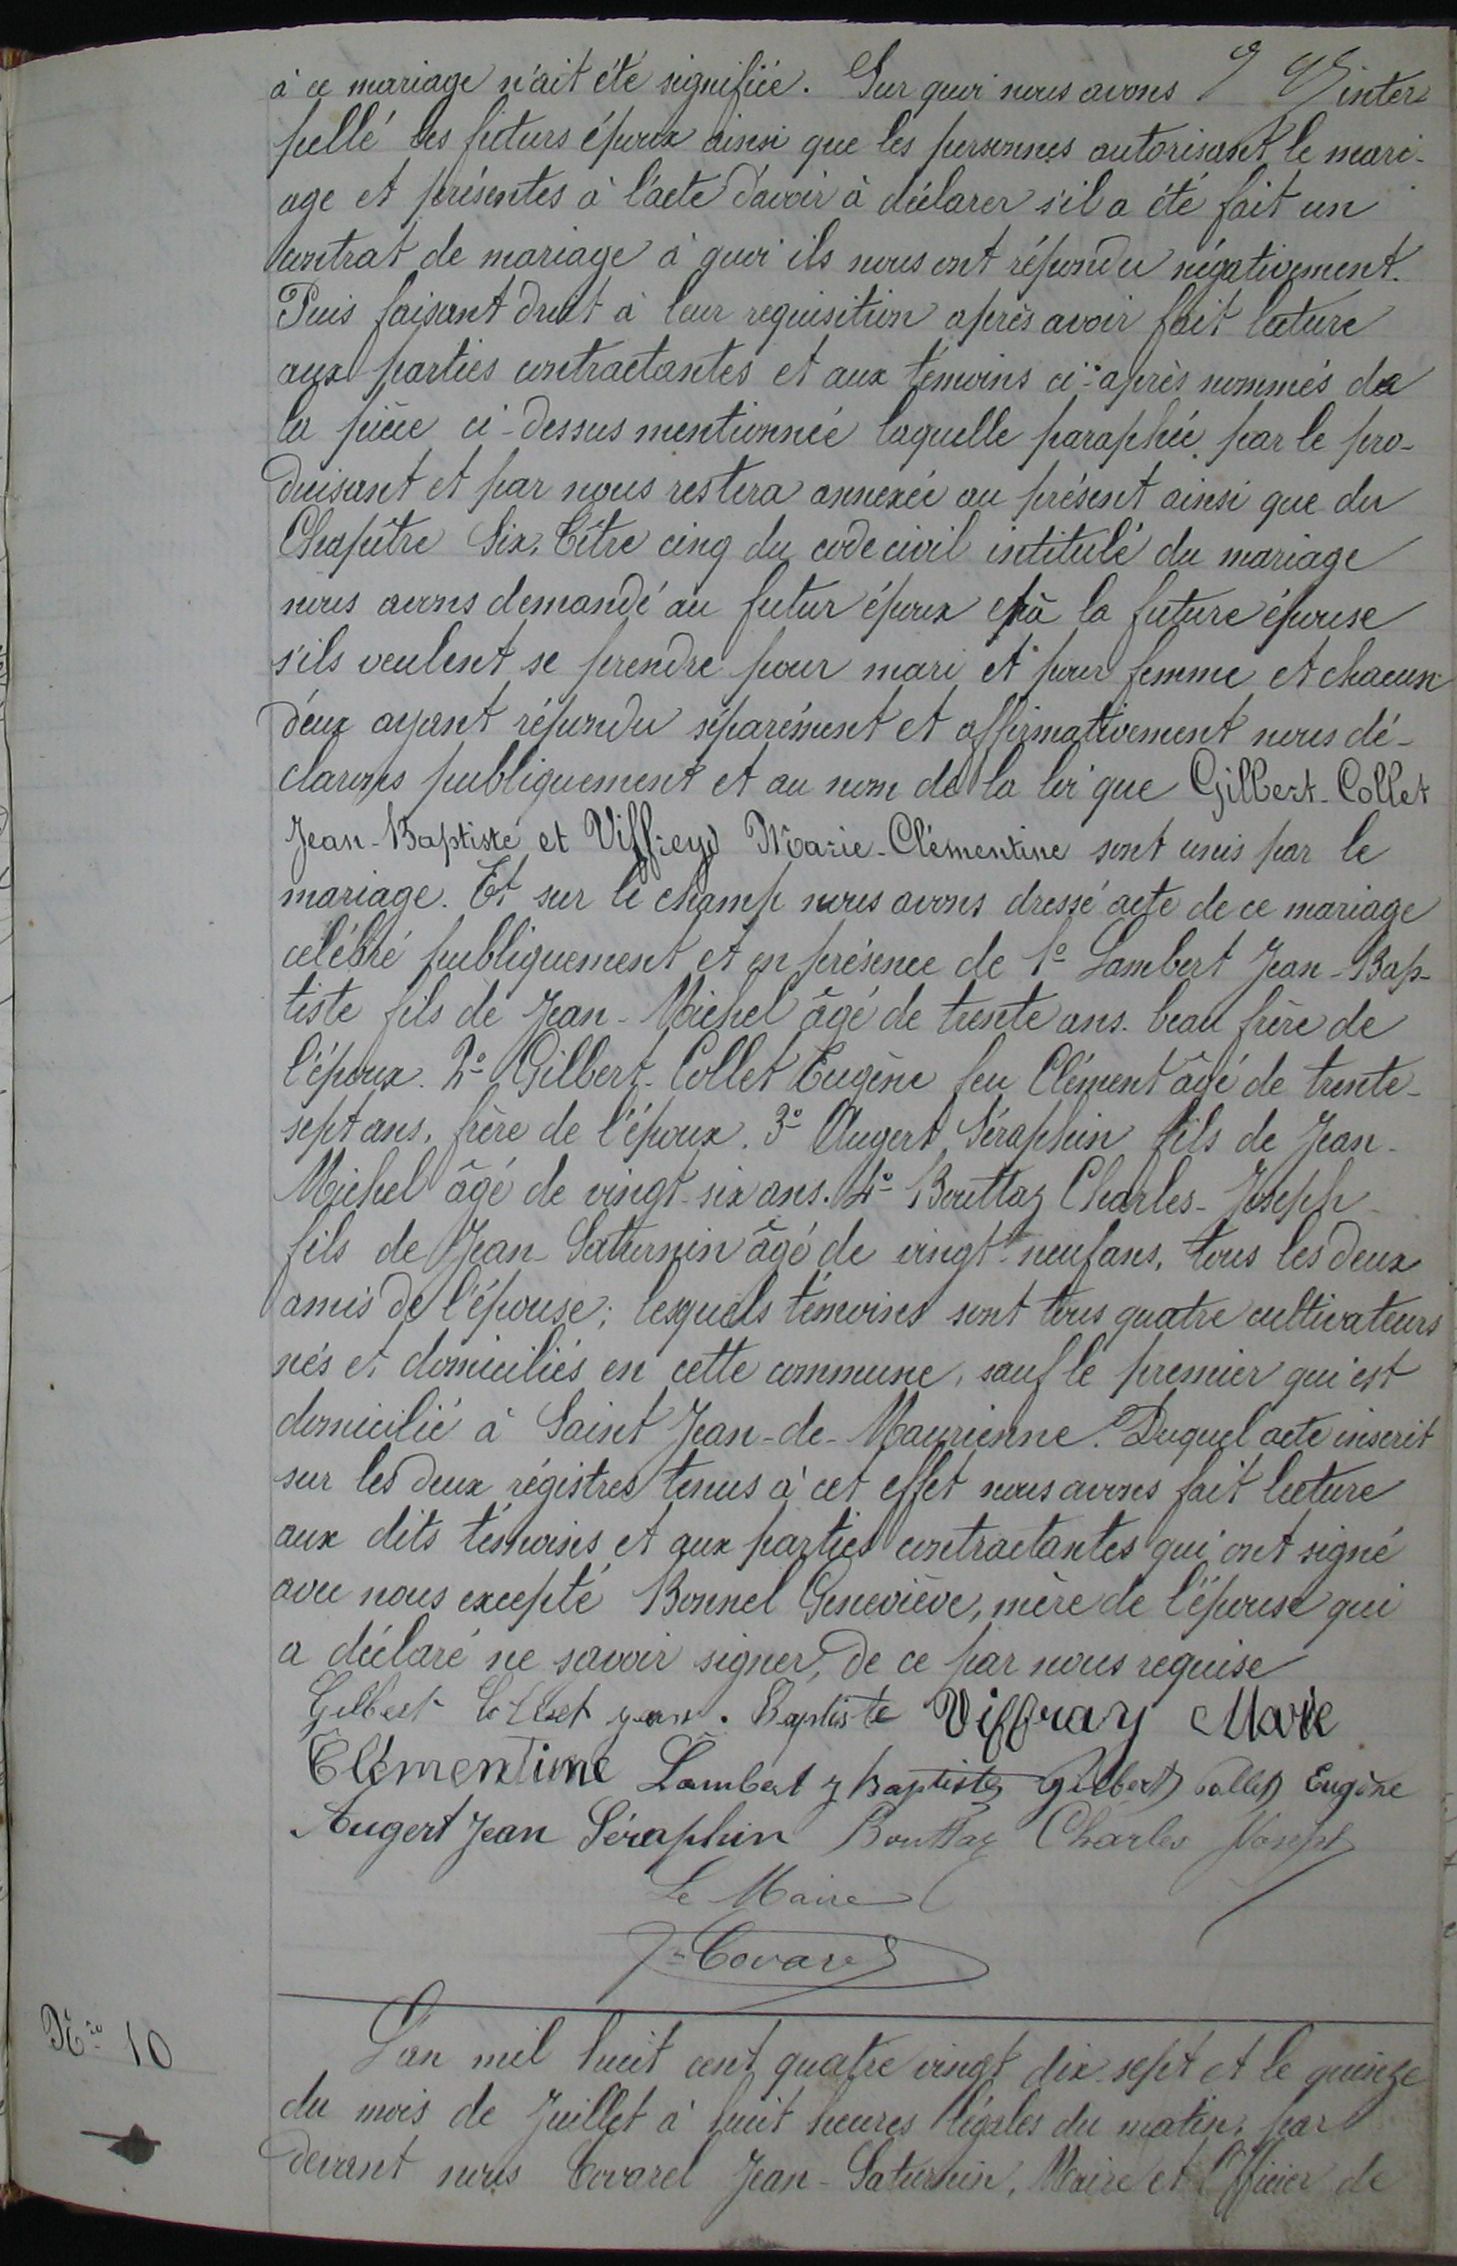 à ce mariage n'ait été signifiée. Sur quoi nous avons inter-
pellé les futurs époux ainsi que les personnes autorisant le mari-
age et présentes à l'acte d'avoir à déclarer s'il a été fait un
contrat de mariage à quoi ils nous ont répondu négativement.
Puis faisant droit à leur requisition après avoir fait lecture
aux parties contractantes et aux témoins ci-après nommés de
la pièce ci-dessus mentionnée laquelle paraphée par le pro-
duisant et par nous restera annexée au présent ainsi que du
Chapitre Six, titre cinq du code civil intitulé du mariage
nous avons demandé au futur époux et à la future épouse
s'ils veulent se prendre pour mari et pour femme et chacun
d'eux ayant répondu séparément et affirmativement nous dé-
clarons publiquement et au nom de la loi que Gilbert-Collet
Jean-Baptiste et Viffrey Marie-Clémentine sont unis par le
mariage. Et sur le champ nous avons dressé acte de ce mariage
célébré publiquement et en présence de 1º Lambert Jean-Bap-
tiste fils de Jean-Michel âgé de trente ans beau frère de
l'époux. 2º Gilbert-Collet Eugène feu Clément âgé de trente-
sept ans, frère de l'époux. 3º Augert Séraphin fils de Jean-
Michel âgé de vingt-six ans. 4º Bouttaz Charles-Joseph
fils de Jean Saturnin âgé de vingt-neuf ans, tous les deux
amis de l'épouse; lesquels témoins sont tous quatre cultivateurs
nés et domiciliés en cette commune, sauf le premier qui est
domicilié à Saint Jean-de-Maurienne. Duquel acte inscrit
sur les deux régistres tenus à cet effet nous avons fait lecture
aux dits témoins et aux parties contractantes qui ont signé
avec nous excepté Bonnel Geneviève, mère de l'épouse qui
a déclaré ne savoir signer, de ce par nous requise
Gilbert Collet jean. Baptiste Viffray Marie
Clémentine Lambert J Baptiste Gilbert Collet Eugène
Augert Jean Séraphin Bouttaz Charles Joseph
Le Maire
J-Covarel
Nro 10
L'an mil huit cent quatre vingt dix-sept et le quinze
du mois de Juillet à huit heures légales du matin, par
devant nous Covarel Jean-Saturnin, Maire et Officier de